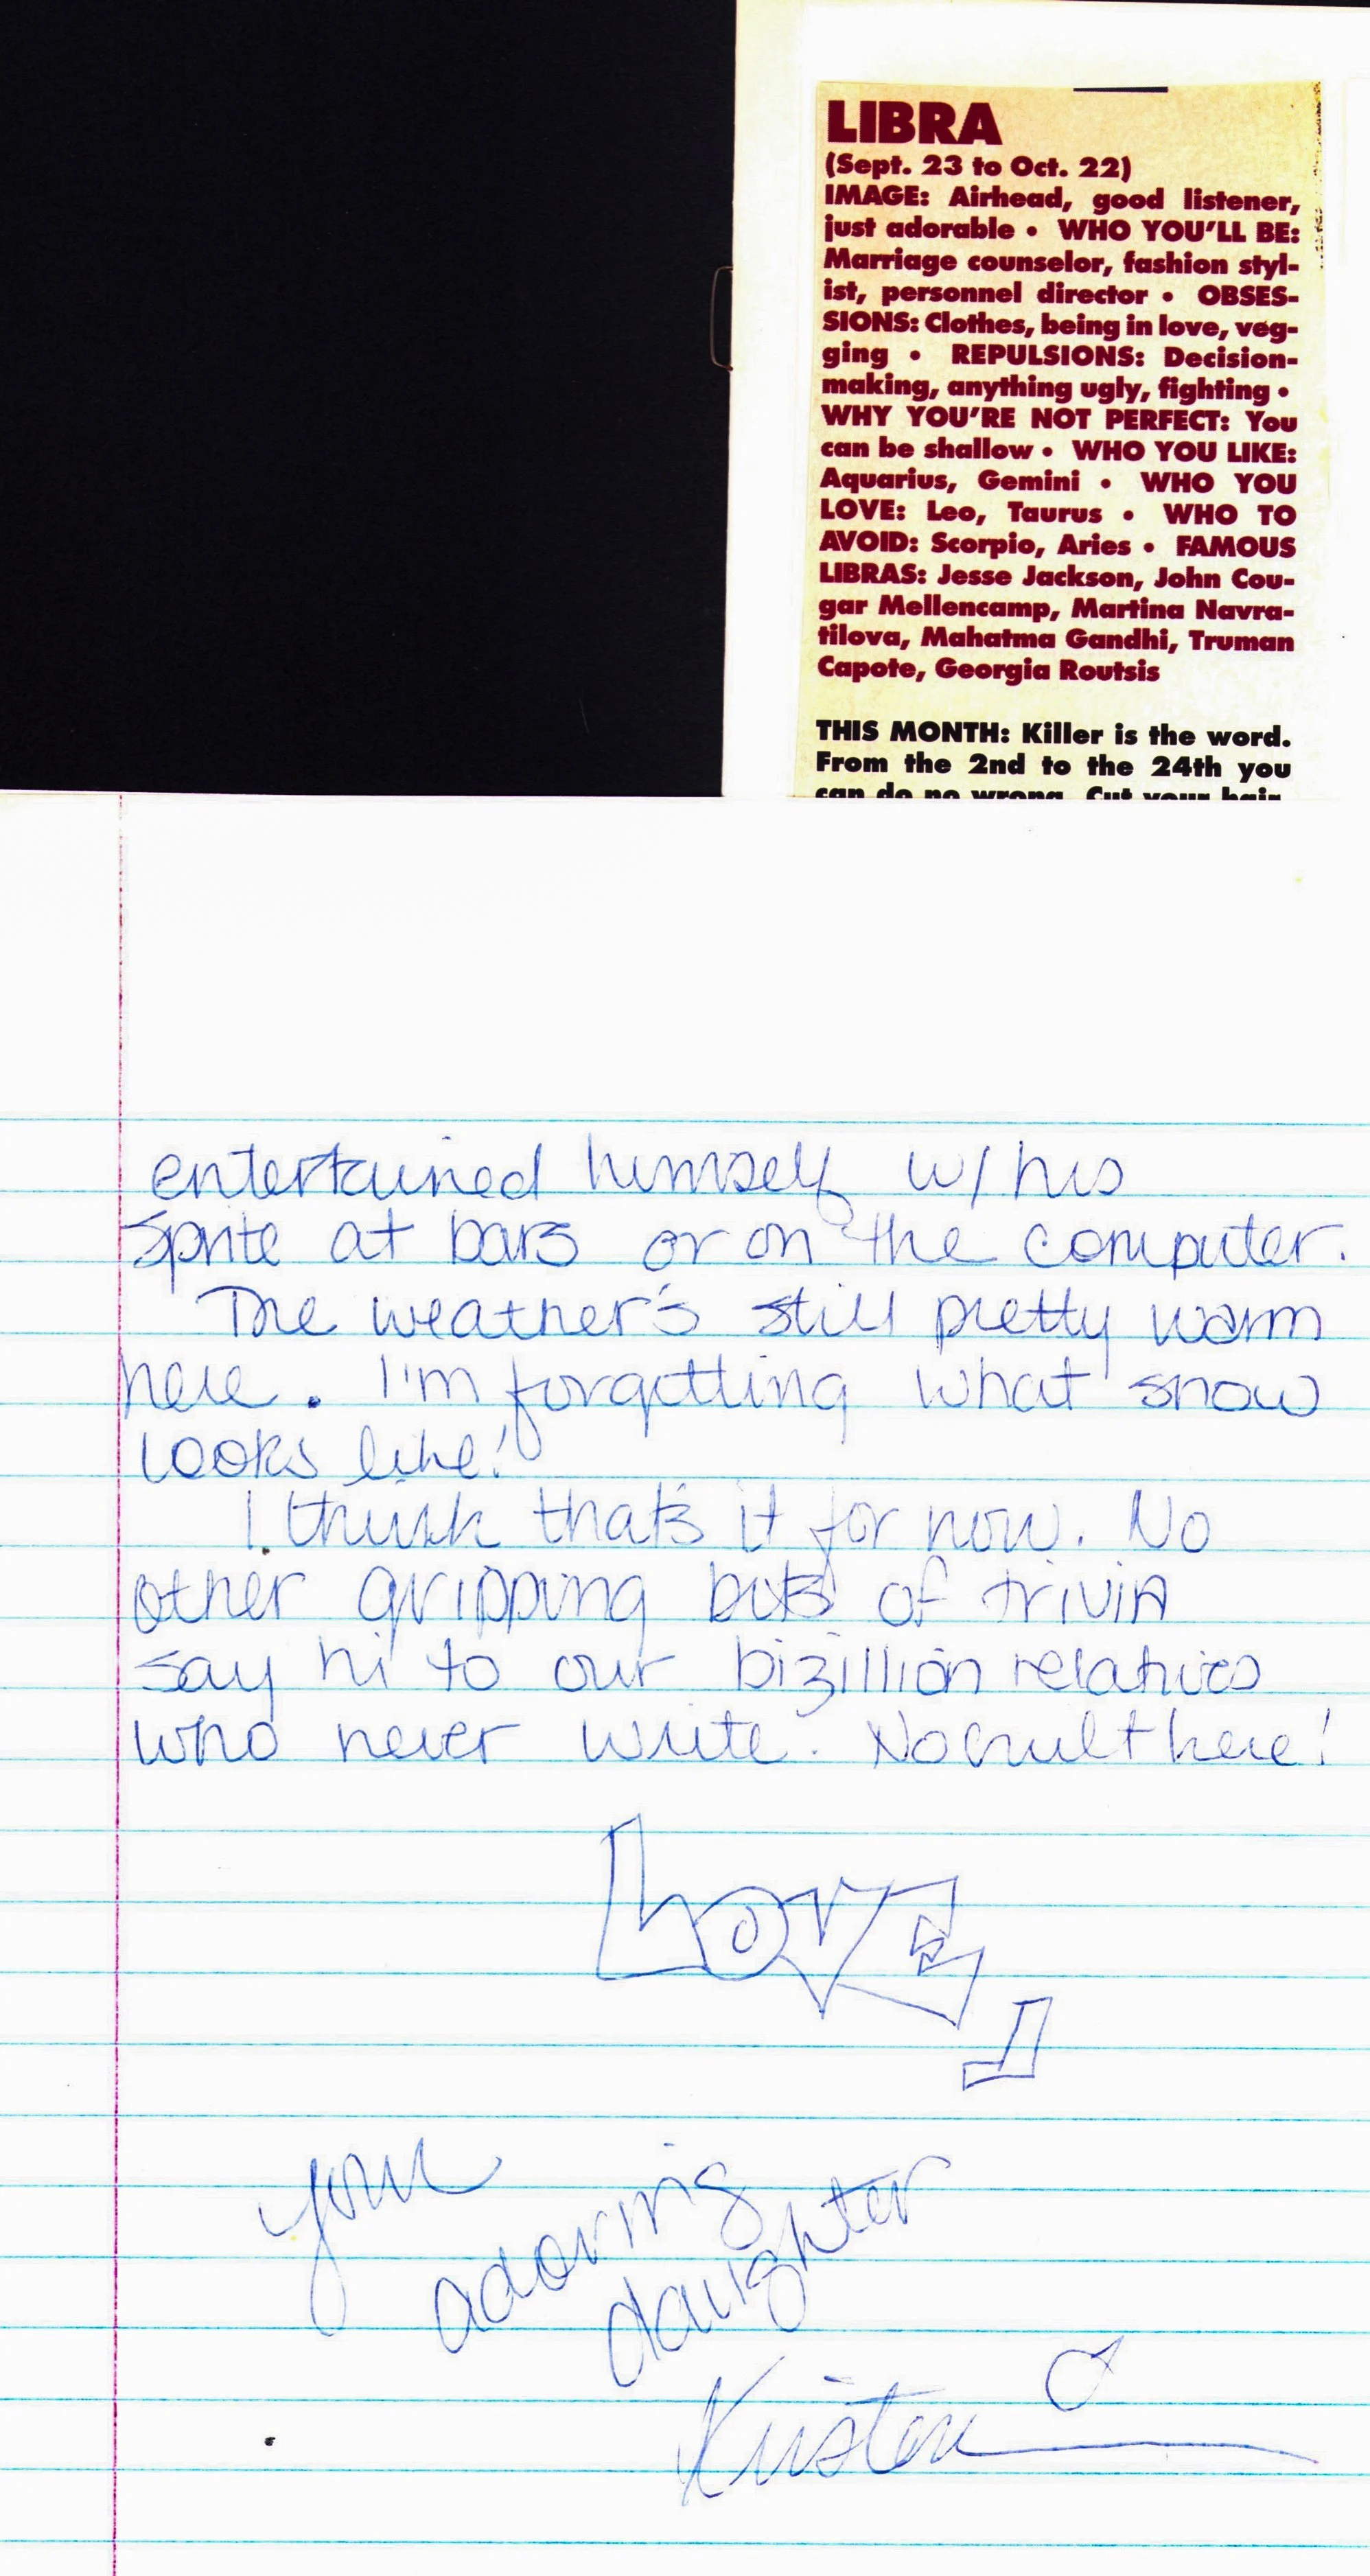 LIBRA
(Sept. 23 to Oct. 22)
IMAGE: Airhead, good listener,
just adorable • WHO YOU'LL BE:
Marriage counselor, fashion styl-
ist, personnel director • OBSES-
SIONS: Clothes, being in love, veg-
ging • REPULSIONS: Decision-
making, anything ugly, fighting •
WHY YOU'RE NOT PERFECT: You
can be shallow • WHO YOU LIKE:
Aquarius, Gemini • WHO YOU
LOVE: Leo, Taurus • WHO TO
AVOID: Scorpio, Aries • FAMOUS
LIBRAS: Jesse Jackson, John Cou-
gar Mellencamp, Martina Navra-
tilova, Mahatma Gandhi, Truman
Capote, Georgia Routsis
THIS MONTH: Killer is the word.
From the 2nd to the 24th you
can do no wrong. Cut your hair,
entertained himself w/ his
Sprite at bars or on the computer.
The weather's still pretty warm
here. I'm forgetting what snow
looks like!
I think that's it for now. No
other gripping bits of trivia
say hi to our bizillion relatives
who never write. No guilt here!
LOVE,
your
adoring
daughter
Kristen